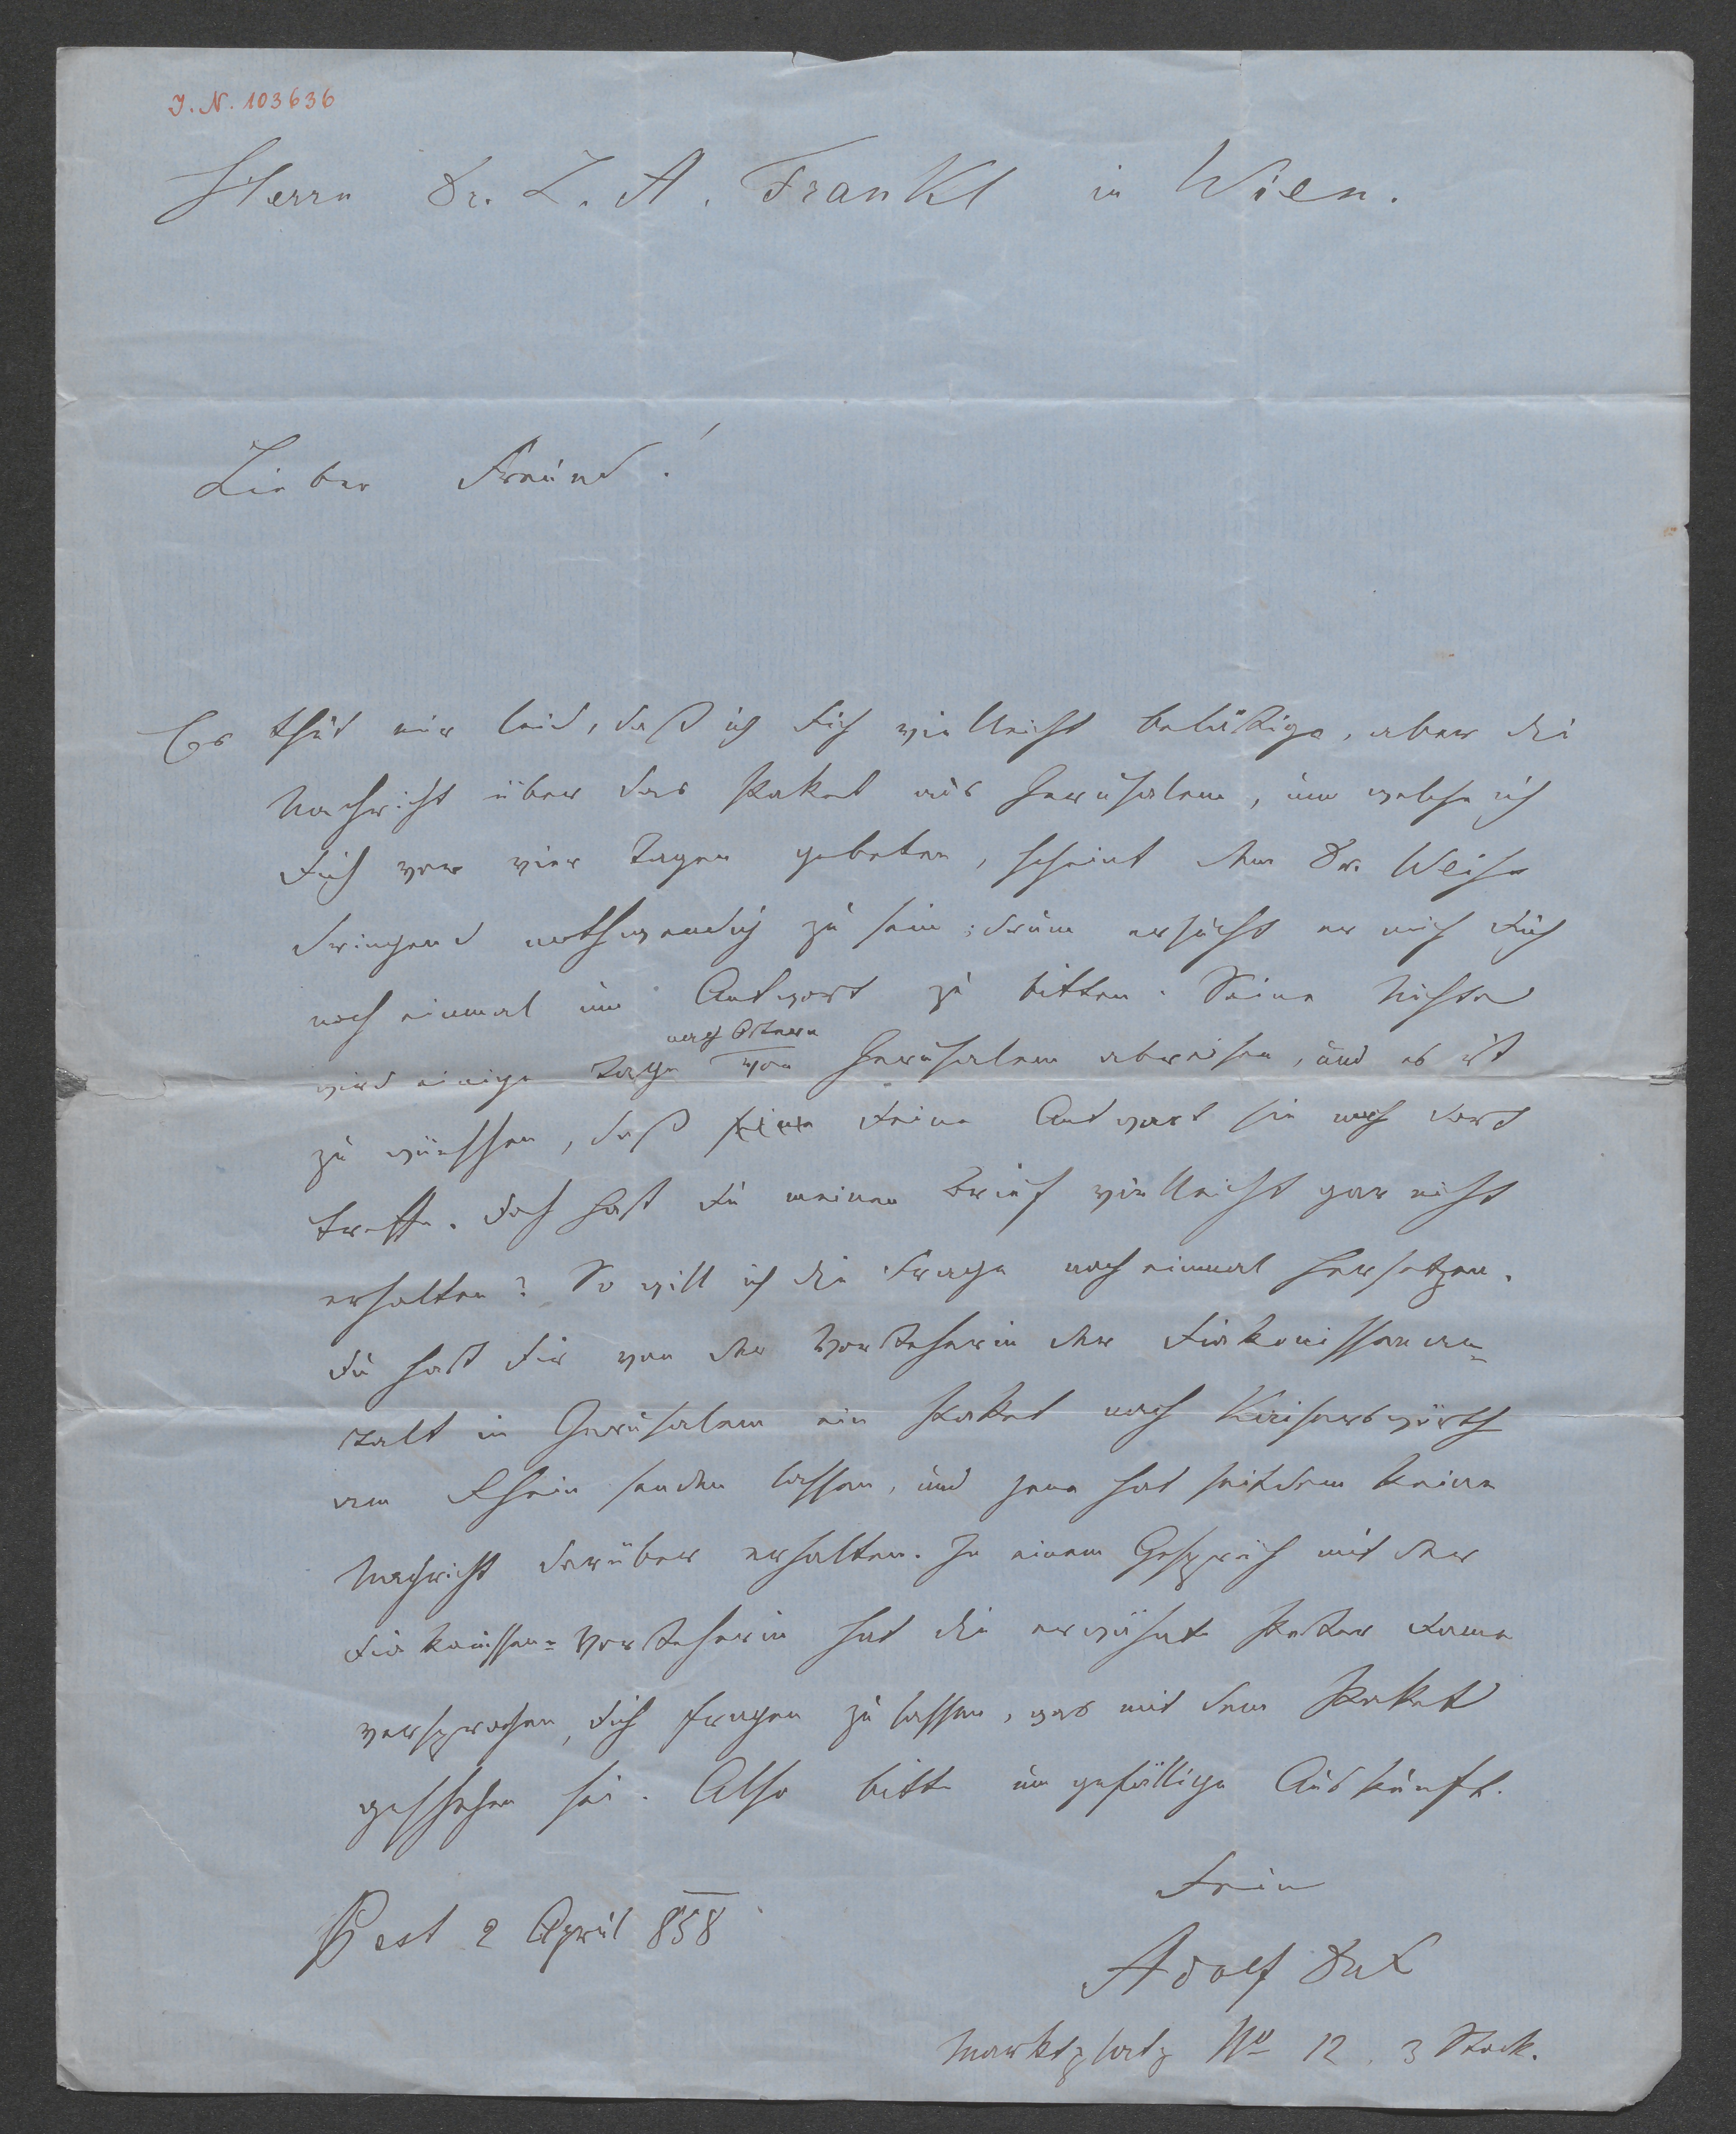 J. N. 103636
Herrn Dr. L. A. Frankl in Wien.
Lieber Freund!
Es thut mir leid, daß ich Dich vielleicht belästige, aber die
Nachricht über das Paket aus Jerusalem, um welche ich
Dich vor vier Tagen gebeten, scheint dem Dr. Weiße
dringend nothwendig zu sein; drum ersucht er mich Dich
noch einmal um Antwort zu bitten. Seine Nichte
nach Ostern
wird einige Tage von Jerusalem abreisen, und es ist
zu wünschen, daß seine Deine Antwort sie noch dort
treffe. Doch hast Du meinen Brief vielleicht gar nicht
erhalten? So will ich die Frage noch einmal hersetzen.
Du hast Dir von der Vorsteherin der Diakonissenan-
stalt in Jerusalem ein Paket nach Kaiserswörth
am Rhein senden lassen, und jene hat seitdem keine
Nachricht darüber erhalten. In einem Gespräch mit der
Diakonissen-Vorsteherin hat die erwähnte Pester Dame
versprochen, Dich fragen zu lassen, was mit dem Paket
geschehen sei. Also bitte um gefällige Auskunft.
Dein
Pest 2 April 858
Adolf Dux
Marktplatz No 12, 3 Stock.